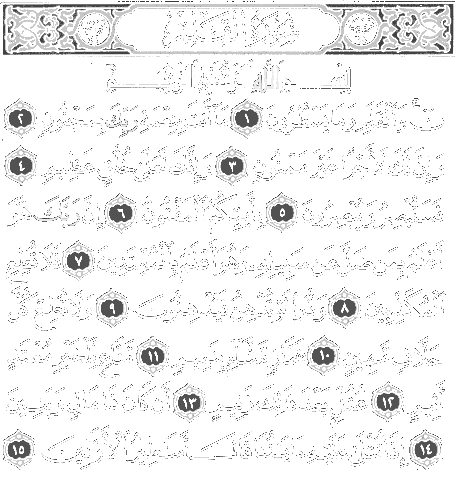 سورة القلم
بسم الله الرحمن الرحيم
نٓ وَالْقَلَمِ وَمَا يَسْطُرُونَ ١ مَا أَنتَ بِنِعْمَةِ رَبِّكَ بِمَجْنُونٍ ٢
وَإِنَّ لَكَ لَأَجْرًا غَيْرَ مَمْنُونٍ ٣ وَإِنَّكَ لَعَلَىٰ خُلُقٍ عَظِيمٍ ٤
فَسَتُبْصِرُ وَيُبْصِرُونَ ٥ بِأَييِّكُمُ الْمَفْتُونُ ٦ إِنَّ رَبَّكَ هُوَ
أَعْلَمُ بِمَن ضَلَّ عَن سَبِيلِهِ وَهُوَ أَعْلَمُ بِالْمُهْتَدِينَ ٧ فَلَا تُطِعِ
الْمُكَذِّبِينَ ٨ وَدُّوا لَوْ تُدْهِنُ فَيُدْهِنُونَ ٩ وَلَا تُطِعْ كُلَّ
حَلَّافٍ مَّهِينٍ ١٠ هَمَّازٍ مَّشَّاءٍ بِنَمِيمٍ ١١ مَّنَّاعٍ لِّلْخَيْرِ مُعْتَدٍ
أَثِيمٍ ١٢ عُتُلٍّ بَعْدَ ذَٰلِكَ زَنِيمٍ ١٣ أَن كَانَ ذَا مَالٍ وَبَنِينَ
١٤ إِذَا تُتْلَىٰ عَلَيْهِ آيَاتُنَا قَالَ أَسَاطِيرُ الْأَوَّلِينَ ١٥